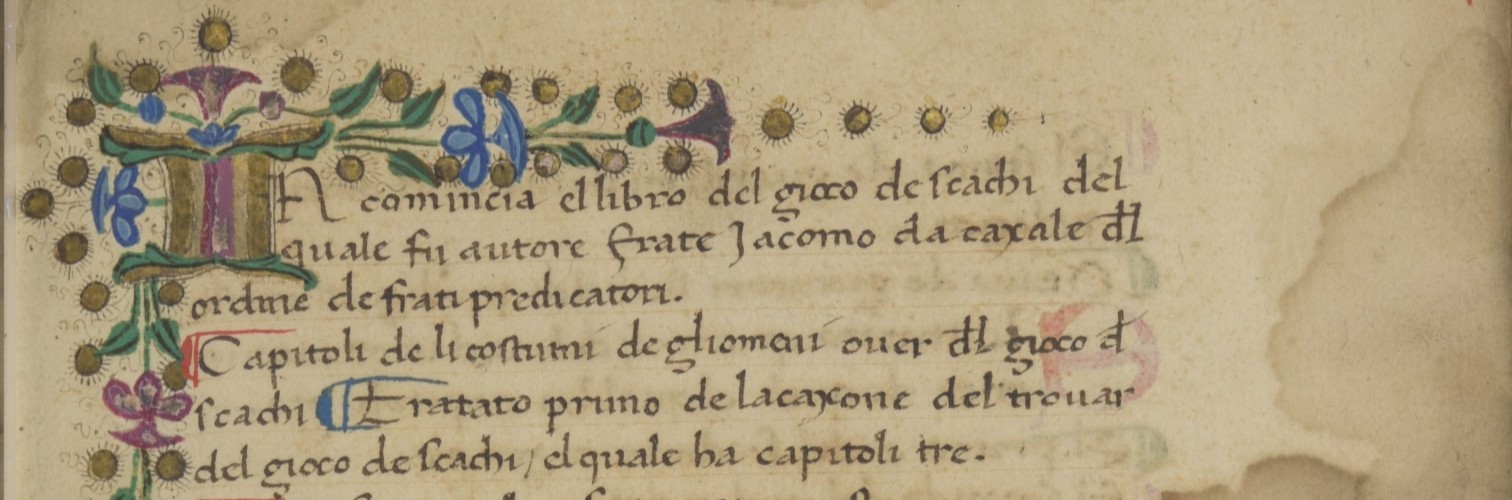 IN comincia el libro del gioco de scachi del
quale fu autore frate Jacomo da caxale dl
ordine de frati predicatori.
Capitoli de li costumi de gliomeni ouer dl gioco d
scachi Tratato primo de la caxone del trouar
del gioco de scachi / el quale ha capitoli tre.